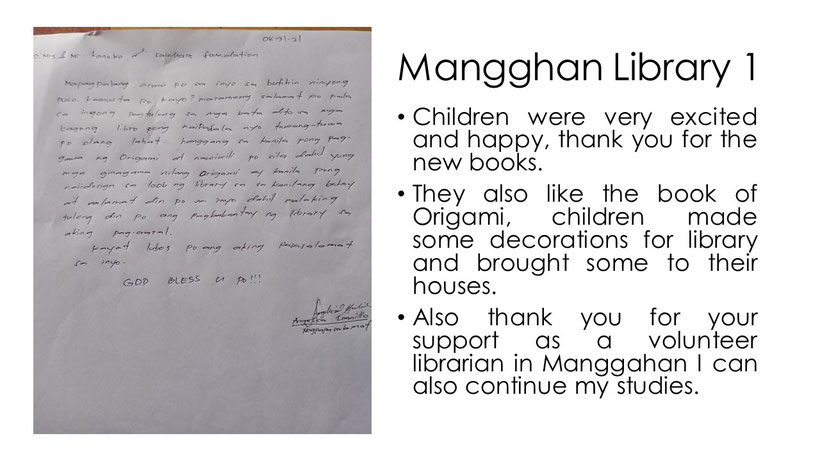 04-21-21
foundation
Mapagpalang araw po sa inyo
po kayo? maraming salamat po pala
sa inyong pagtulong sa mga bata dito sa mga
bagong libro pong naipadala nyo tuwang-tuwa
po silang lahat hanggang sa kanila pong pag-
gawa ng Origami at po sila dahil yung
mga ginagawa nilang Origami ay kanila pong
sa loob ng library sa kanilang bahay
at salamat din po sa inyo dahil malaking
tulong din po ang pagbabantay ng library sa
aking pag-aaral.
Kaya't lubos po ang aking pasasalamat
sa inyo.
GOD BLESS U PO!!!
nagpapasalamat
Mangghan Library 1
• Children were very excited
and happy, thank you for the
new books.
• They also like the book of
Origami, children made
some decorations for library
and brought some to their
houses.
• Also thank you for your
support as a volunteer
librarian in Manggahan I can
also continue my studies.